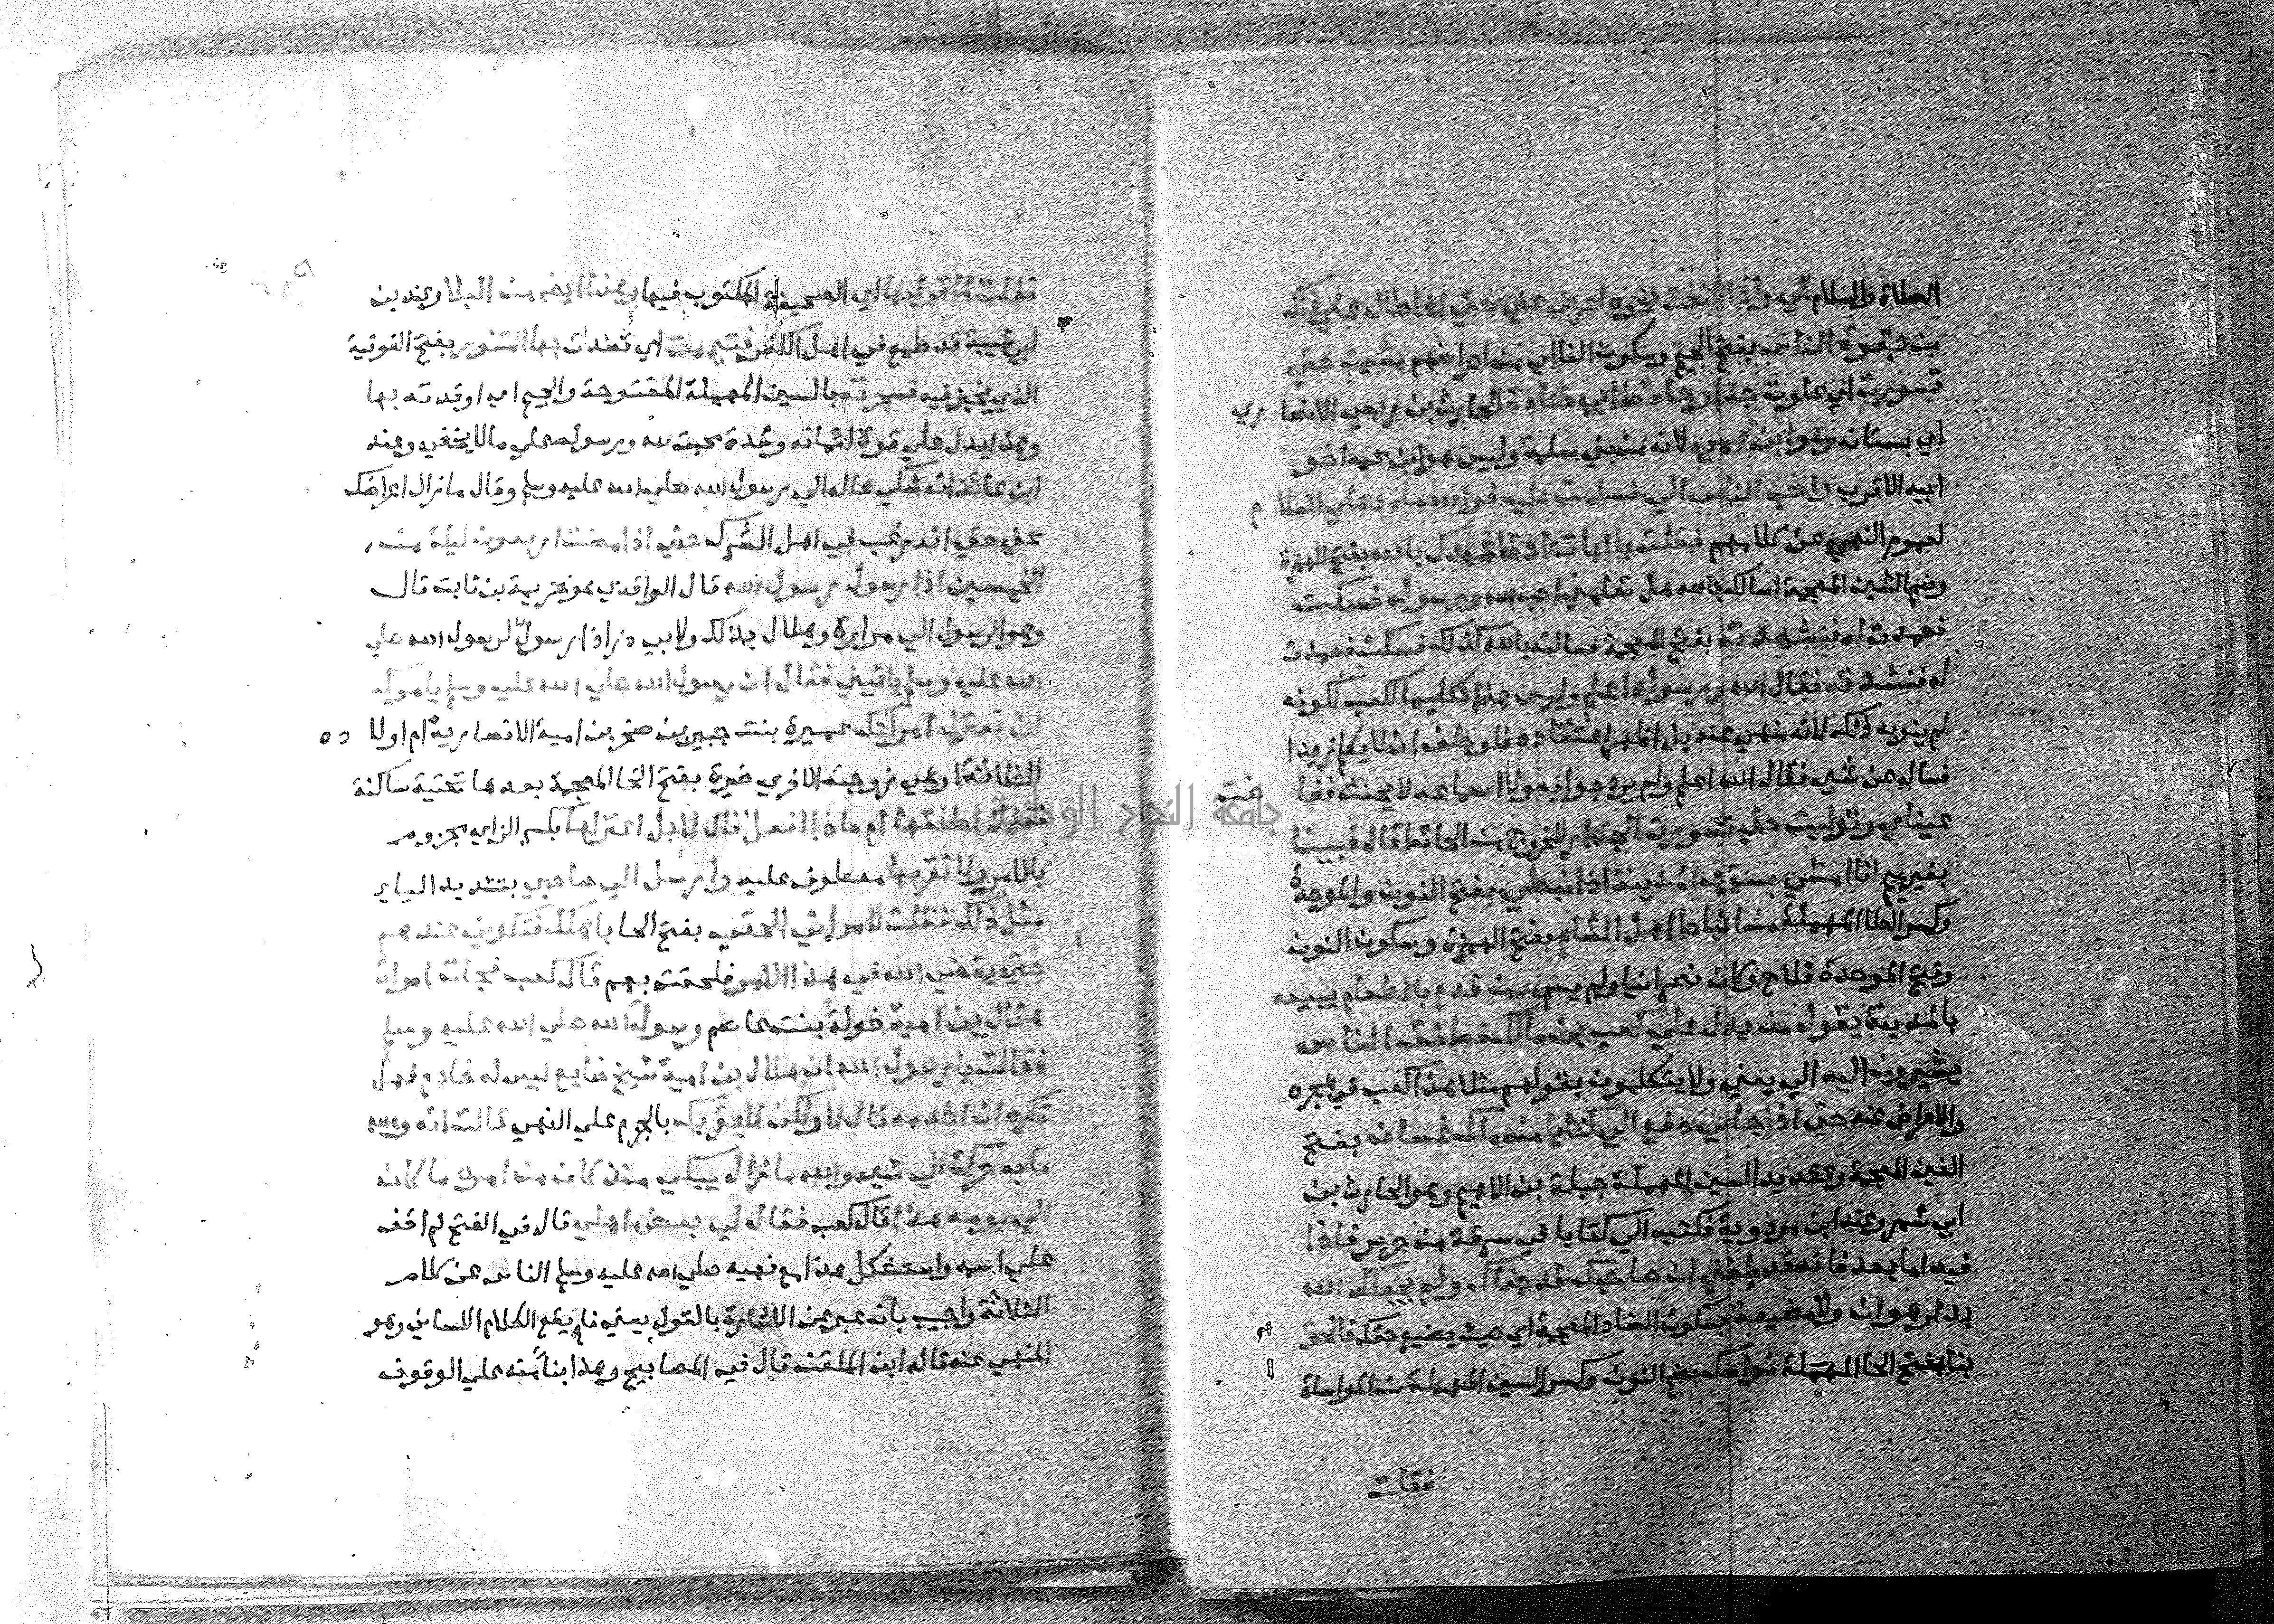 الصلاة والسلام الي واذا التفت نحوه اعرض عني حتي اذا طال علي ذلك
من جفوة الناس بفتح الجيم وسكون الفا اي من اعراضهم مشيت حتي
تسورت اي علوت جدار حائط ابي قتادة الحارث بن ربعي الانصا ري
اي بستانه وهو ابن عمي لانه من بني سلمة وليس هو ابن عمه اخو
ابيه الاقرب واحب الناس الي فسلمت عليه فوالله ما رد علي السلا م
لعموم النهي عن كلامهم فقلت يا ابا قتادة انشدك بالله بفتح الهمزة
وضم الشين المعجمة اسالك بالله هل تعلمني احب الله ورسوله فسكت
فعدت له فنشدته بفتح المعجمة فسالته بالله كذلك فسكت فعدت
له فنشدته فقال الله ورسوله اعلم وليس هذا تكليما لكعب لكونه
لم ينو به ذلك لانه منهي عنه بل اظهر اعتقاده فلو حلف ان لا يكلم زيدا
فساله عن شي فقال الله اعلم ولم يرد جوابه ولا اسماعه لا يحنث ففا ضت
عيناي وتوليت حتي تسورت الجدار للخروج من الحائط قال فبينا
بغير ميم انا امشي بسوق المدينة اذا نبطي بفتح النون والموحدة
وكسر الطا المهملة من انباط اهل الشام بفتح الهمزة وسكون النون
وفتح الموحدة فلاح وكان نصرانيا ولم يسم ممن قدم بالطعام يبيعه
بالمدينة يقول من يدل علي كعب بن مالك فطفق الناس
يشيرون اليه الي يعني ولا يتكلمون بقولهم مثلا هذا كعب في هجره
والاعراض عنه حتي اذا جاني دفع الي كتابا من ملك غسان بفتح
الغين المعجمة وتشديد السين المهملة جبلة بن الايهم وهو الحارث بن
ابي شمر وعند ابن مردوية فكتب الي كتابا في سرقة من حرير فاذا
فيه اما بعد فانه قد بلغني ان صاحبك قد جفاك ولم يجعلك الله
بدار هوان ولا مضيعة بسكون الضاد المعجمة اي حيث يضيع حقك فالحق
بنا بفتح الحا المهملة نواسك بضم النون وكسر السين المهملة من المواساة
فقلت
فقلت لما قراتها اي الصحيفة المكتوب فيها وهذا ايضا من البلا وعند بن
ابي شيبة قد طمع في اهل الكفر فتيممت اي قصدت بها التنور بفتح الفوقية
الذي يخبز فيه فسجرته بالسين المهملة المفتوحة والجيم اي اوقدته بها
وهذا يدل علي قوة ايمانه وشدة محبته لله ورسوله علي ما لا يخفي وعند
ابن عائذ انه شكي حاله الي رسول الله صلي الله عليه وسلم وقال ما زال اعراضك
عني حتي رغب في اهل الشرك حتي اذا مضت اربعون ليلة من
الخمسين اذا رسول رسول الله قال الواقدي هو خزيمة بن ثابت قال
وهو الرسول الي مرارة وهلال بذلك ولابي ذر اذا رسول لرسول الله صلي
الله عليه وسلم ياتيني فقال ان رسول الله صلي الله عليه وسلم يامرك
ان تعتزل امراتك عميرة بنت جبير بن صخر بن امية الانصارية ام اولا ده
الثلاثة او هي زوجته الاخري خيرة بفتح الخا المعجمة بعدها تحتية ساكنة
فقلت اطلقها ام ماذا افعل قال لا بل اعتزلها بكسر الزاي مجزوم
بالامر ولا تقربها معطوف عليه وارسل الي صاحبي بتشديد الياء
مثل ذلك فقلت لامراتي الحقي بفتح الحا باهلك فتكوني عندهم
حتي يقضي الله في هذا الامر فلحقت بهم قال كعب فجات امراة
هلال بن امية خولة بنت عاصم رسول الله صلي الله عليه وسلم
فقالت يا رسول الله ان هلال بن امية شيخ ضايع ليس له خادم فهل
تكره ان اخدمه قال لا ولكن لا يقربك بالجزم علي النهي قالت انه والله
ما به حركة الي شي والله ما زال يبكي منذ كان من امره ما كان
الي يومه هذا قال كعب فقال لي بعض اهلي قال في الفتح لم اقف
علي اسمه واستشكل هذا مع نهيه صلي الله عليه وسلم الناس عن كلام
الثلاثة واجيب بانه عبر عن الاشارة بالقول يعني فلم يقع الكلام اللساني وهو
المنهي عنه قاله ابن الملقن قال في المصابيح وهذا بنا منه علي الوقوف
جامعة النجاح الوطنية